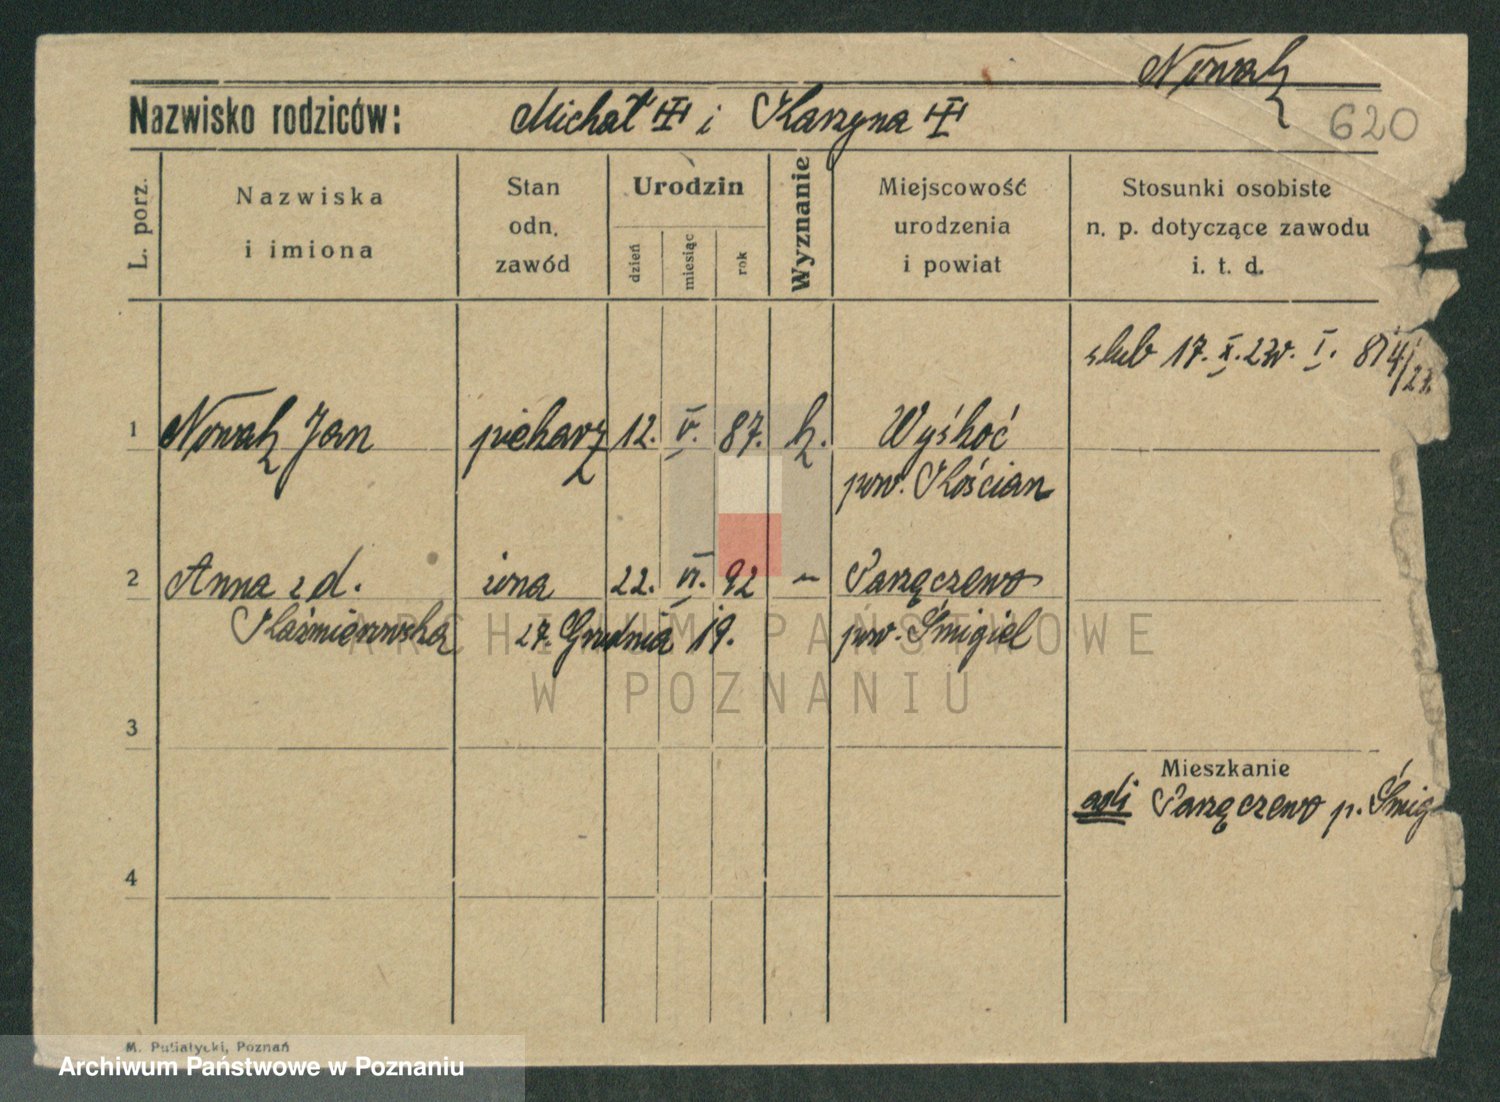 Nowak
620
Nazwisko rodziców: Michał i Karzyna
L. porz.
Nazwiska i imiona
Stan odn. zawód
Urodzin
dzień miesiąc rok
Wyznanie
Miejscowość urodzenia i powiat
Stosunki osobiste n. p. dotyczące zawodu i. t. d.
slub 17. X. 23 I. 814/23
1 Nowak Jan piekarz 12. V. 87. k. Wyskoć
pow. Kościan
2 Anna z d. żona 22. VI. 92 – Parzęczewo
Kaźmierowska 27. Grudnia 19. pow. Śmigiel
3
Mieszkanie
Parzęczewo p. Śmig
4
M. Putiatycki, Poznań
ARCHIWUM PAŃSTWOWE
W POZNANIU
Archiwum Państwowe w Poznaniu